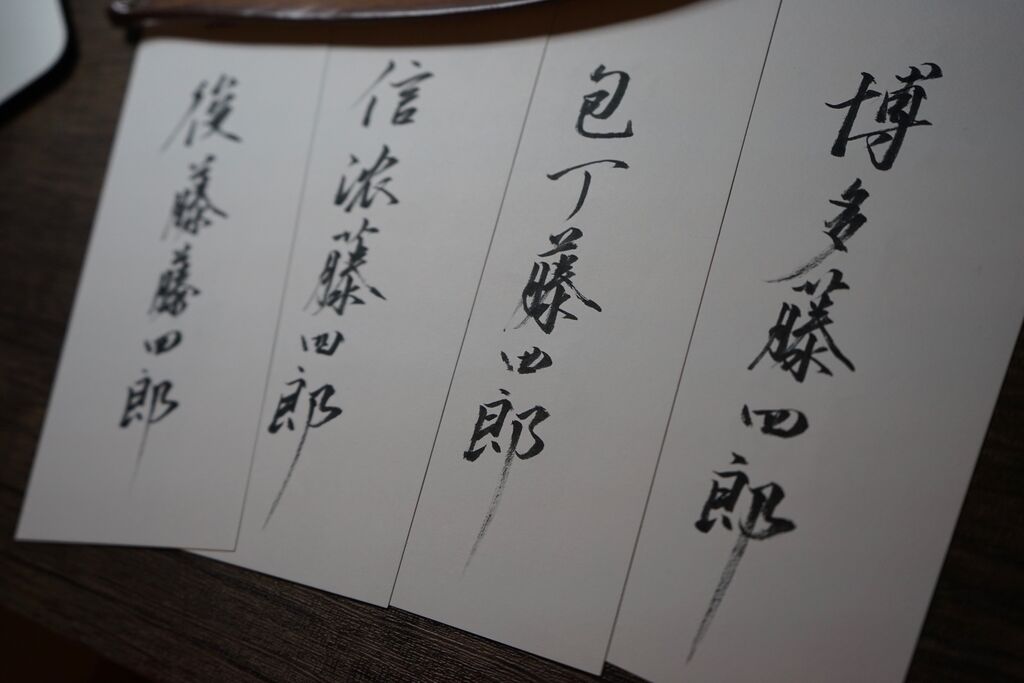 博多藤四郎
包丁藤四郎
信浓藤四郎
後藤藤四郎